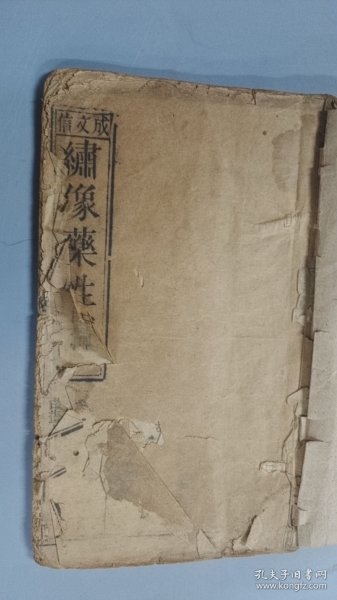 成文信
繡像藥性
孔夫子旧书网
www.kongfz.com